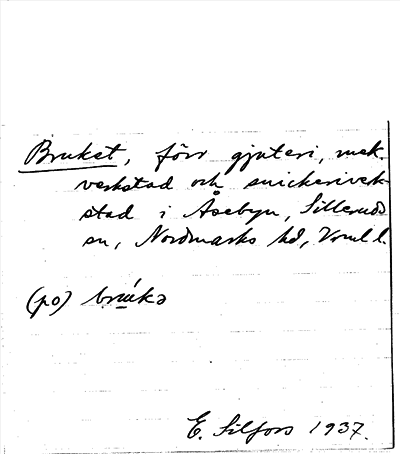 Bruket, förr gjuteri, mek.
verkstad och snickeriverk-
stad i Åsebyn, Silleruds
sn, Nordmarks hd, Vrml l.
(po) brưkə
E. Silfors 1937.